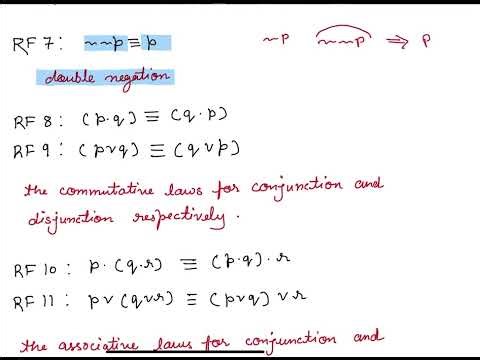 RF 7: ~~p ≡ p ~p ~~p ⇒ p
double negation
RF 8: (p.q) ≡ (q.p)
RF 9: (p∨q) ≡ (q∨p)
the commutative laws for conjunction and
disjunction respectively.
RF 10: p.(q.r) ≡ (p.q).r
RF 11: p∨(q∨r) ≡ (p∨q)∨r
the associative laws for conjunction and